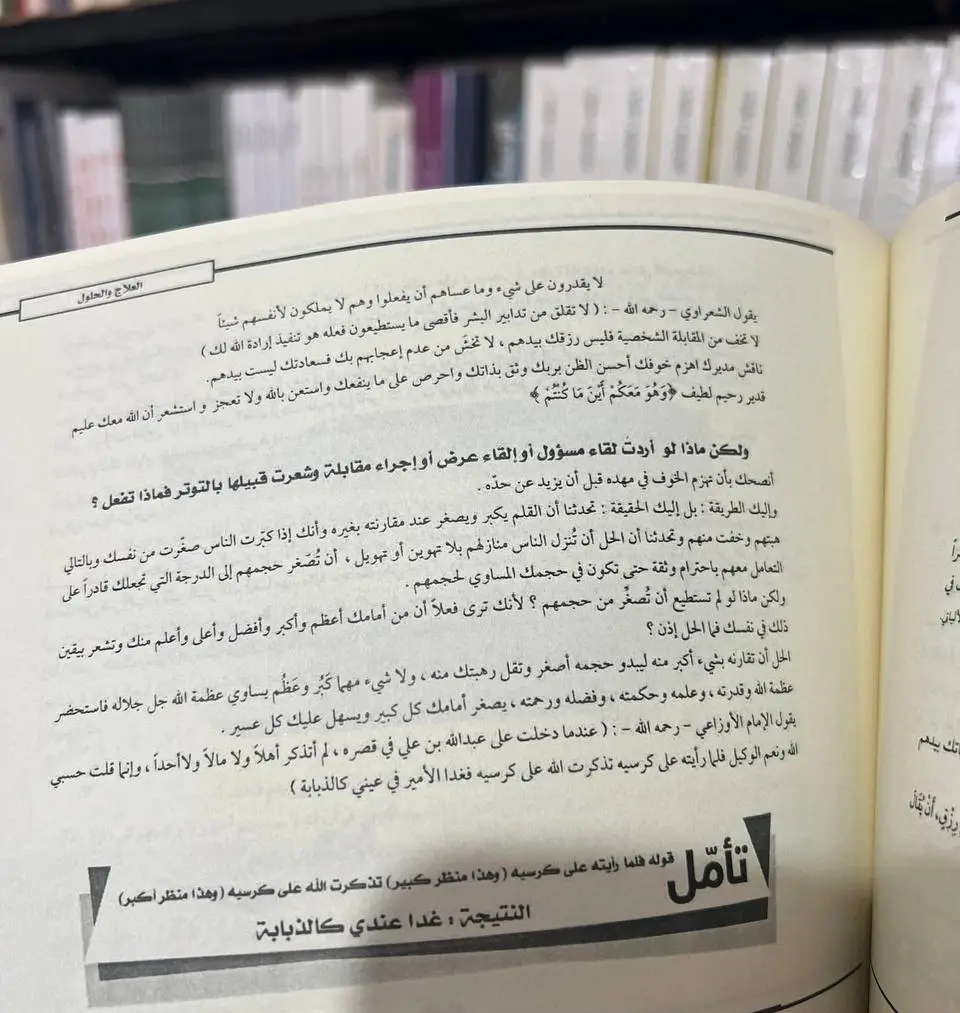 العلاج والحلول
لا يقدرون على شيء وما عساهم أن يفعلوا وهم لا يملكون لأنفسهم شيئاً
يقول الشعراوي - رحمه الله - : ( لا تقلق من تدابير البشر فأقصى ما يستطيعون فعله هو تنفيذ إرادة الله لك )
لا تخف من المقابلة الشخصية فليس رزقك بيدهم ، لا تخشَ من عدم إعجابهم بك فسعادتك ليست بيدهم.
ناقش مديرك اهزم خوفك أحسن الظن بربك وثق بذاتك واحرص على ما ينفعك واستعن بالله ولا تعجز و استشعر أن الله معك عليم
قدير رحيم لطيف ﴿وَهُوَ مَعَكُمْ أَيْنَ مَا كُنْتُمْ ﴾
ولكن ماذا لو أردتَ لقاء مسؤول أو إلقاء عرض أو إجراء مقابلة وشعرت قبيلها بالتوتر فماذا تفعل ؟
أنصحك بأن تهزم الخوف في مهده قبل أن يزيد عن حدّه .
وإليك الطريقة : بل إليك الحقيقة : تحدثنا أن القلم يكبر ويصغر عند مقارنته بغيره وأنك إذا كبّرت الناس صغّرت من نفسك وبالتالي
هبتهم وخفت منهم وتحدثنا أن الحل أن تُنزل الناس منازلهم بلا تهوين أو تهويل ، أن تُصّغر حجمهم إلى الدرجة التي تجعلك قادراً على
التعامل معهم باحترام وثقة حتى تكون في حجمك المساوي لحجمهم .
ولكن ماذا لو لم تستطيع أن تُصغِّر من حجمهم ؟ لأنك ترى فعلاً أن من أمامك أعظم وأكبر وأفضل وأعلى وأعلم منك وتشعر بيقين
ذلك في نفسك فما الحل إذن ؟
الحل أن تقارنه بشيء أكبر منه ليبدو حجمه أصغر وتقل رهبتك منه ، ولا شيء مهما كَبُر وعَظُم يساوي عظمة الله جل جلاله فاستحضر
عظمة الله وقدرته ، وعلمه وحكمته ، وفضله ورحمته ، يصغر أمامك كل كبير ويسهل عليك كل عسير .
يقول الإمام الأوزاعي - رحمه الله - : ( عندما دخلت على عبدالله بن علي في قصره ، لم أتذكر أهلاً ولا مالاً ولا أحداً ، وإنما قلت حسبي
الله ونعم الوكيل فلما رأيته على كرسيه تذكرت الله على كرسيه فغدا الأمير في عيني كالذبابة )
تأمّل
قوله فلما رأيته على كرسيه (وهذا منظر كبير) تذكرت الله على كرسيه (وهذا منظر أكبر)
النتيجة : غدا عندي كالذبابة